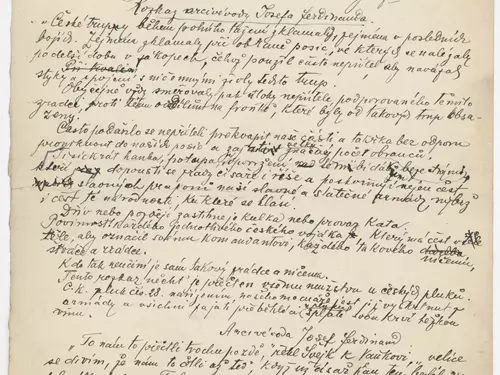 Rozkaz arcivévody Josefa Ferdinanda.
„České trupy během polního tažení zklamaly, zejména v posledních
bojích. Zejména zklamaly při obraně posic, ve kterých se nalézaly
po delší dobu v zákopech, čehož použil často nepřítel, aby navázal
styky a spojení s ničemnými živly těchto trup.
Obyčejně vždy směřovaly pak útoky nepřítele, podporovaného těmito
zrádci, proti těm oddílům na frontě, které byly od takových trup obsa-
zeny.
Často podařilo se nepříteli překvapit naše části a takřka bez odporu
proniknout do našich posic a zajati velký počet obránců.
Tisíckrát hanba, potupa i opovržení bídákům beze cti,
kteří dopustili se zrady císaře i říše a poskvrňují nejen čest
slavných praporů naší slavné a statečné armády, nýbrž
i čest té národnosti, ku které se hlásí.
Dřív nebo později zastihne je kulka nebo provaz kata.
Povinností každého jednotlivého českého vojáka, který má čest v
těle, aby označil svému komandantovi každého takového ničemu,
štváče a zrádce.
Kdo tak neučiní, je sám takový zrádce a ničema.
Tento rozkaz nechť je přečten všemu mužstvu u českých pluků.
C. k. pluk čís. 28. nařízením našeho mocnáře jest již vyškrtnut z
armády a všichni zajatí přeběhlíci z pluku splatí svou krví těžkou
vinu.
Arcivévoda Josef Ferdinand.
„To nám to přečtli trochu pozdě,“ řekl Švejk k Vaňkovi, „velice
se divím, že nám to čtli až teď, když